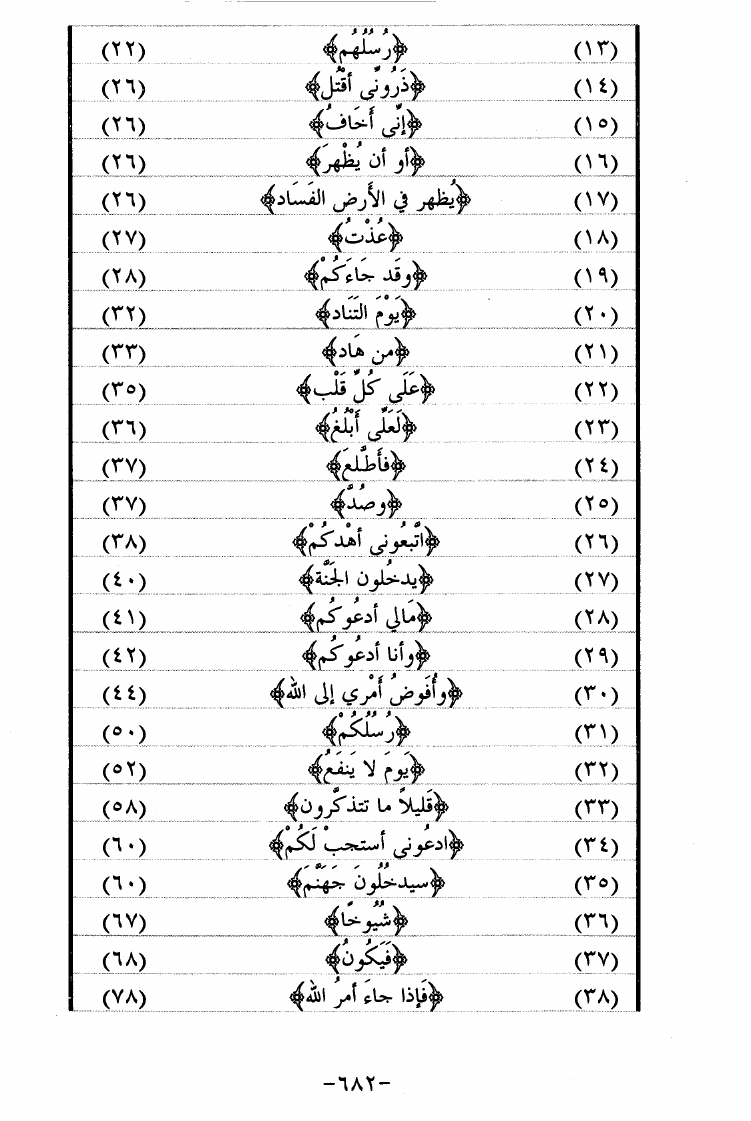 (١٣) ﴿رُسُلُهُم﴾ (٢٢)
(١٤) ﴿ذَرُونِّى أقْتُل﴾ (٢٦)
(١٥) ﴿إنِّى أخَافُ﴾ (٢٦)
(١٦) ﴿أو أن يُظْهرَ﴾ (٢٦)
(١٧) ﴿يُظهر في الأَرض الفَسَاد﴾ (٢٦)
(١٨) ﴿عُذْتُ﴾ (٢٧)
(١٩) ﴿وقَد جَاءَكُمْ﴾ (٢٨)
(٢٠) ﴿يَوْمَ التَنَاد﴾ (٣٢)
(٢١) ﴿من هَاد﴾ (٣٣)
(٢٢) ﴿عَلَى كُلِّ قَلْب﴾ (٣٥)
(٢٣) ﴿لَعَلِّى أَبْلُغُ﴾ (٣٦)
(٢٤) ﴿فأَطَّلعَ﴾ (٣٧)
(٢٥) ﴿وصُدَّ﴾ (٣٧)
(٢٦) ﴿اتَّبعُونى أهْدكُمْ﴾ (٣٨)
(٢٧) ﴿يدخُلون الجَنَّة﴾ (٤٠)
(٢٨) ﴿مَالي أدعُوكُم﴾ (٤١)
(٢٩) ﴿وأنا أدعُوكُم﴾ (٤٢)
(٣٠) ﴿وأُفَوضُ أَمْري إلى الله﴾ (٤٤)
(٣١) ﴿رُسُلُكُمْ﴾ (٥٠)
(٣٢) ﴿يَومَ لا يَنفَعُ﴾ (٥٢)
(٣٣) ﴿قَليلاً ما تتذكَّرون﴾ (٥٨)
(٣٤) ﴿ادعُونى أستجبْ لَكُمْ﴾ (٦٠)
(٣٥) ﴿سيدخُلُونَ جَهَنَّمَ﴾ (٦٠)
(٣٦) ﴿شُيُوخًا﴾ (٦٧)
(٣٧) ﴿فَيَكُونُ﴾ (٦٨)
(٣٨) ﴿فَإذا جاءَ أمرُ الله﴾ (٧٨)
-٦٨٢-